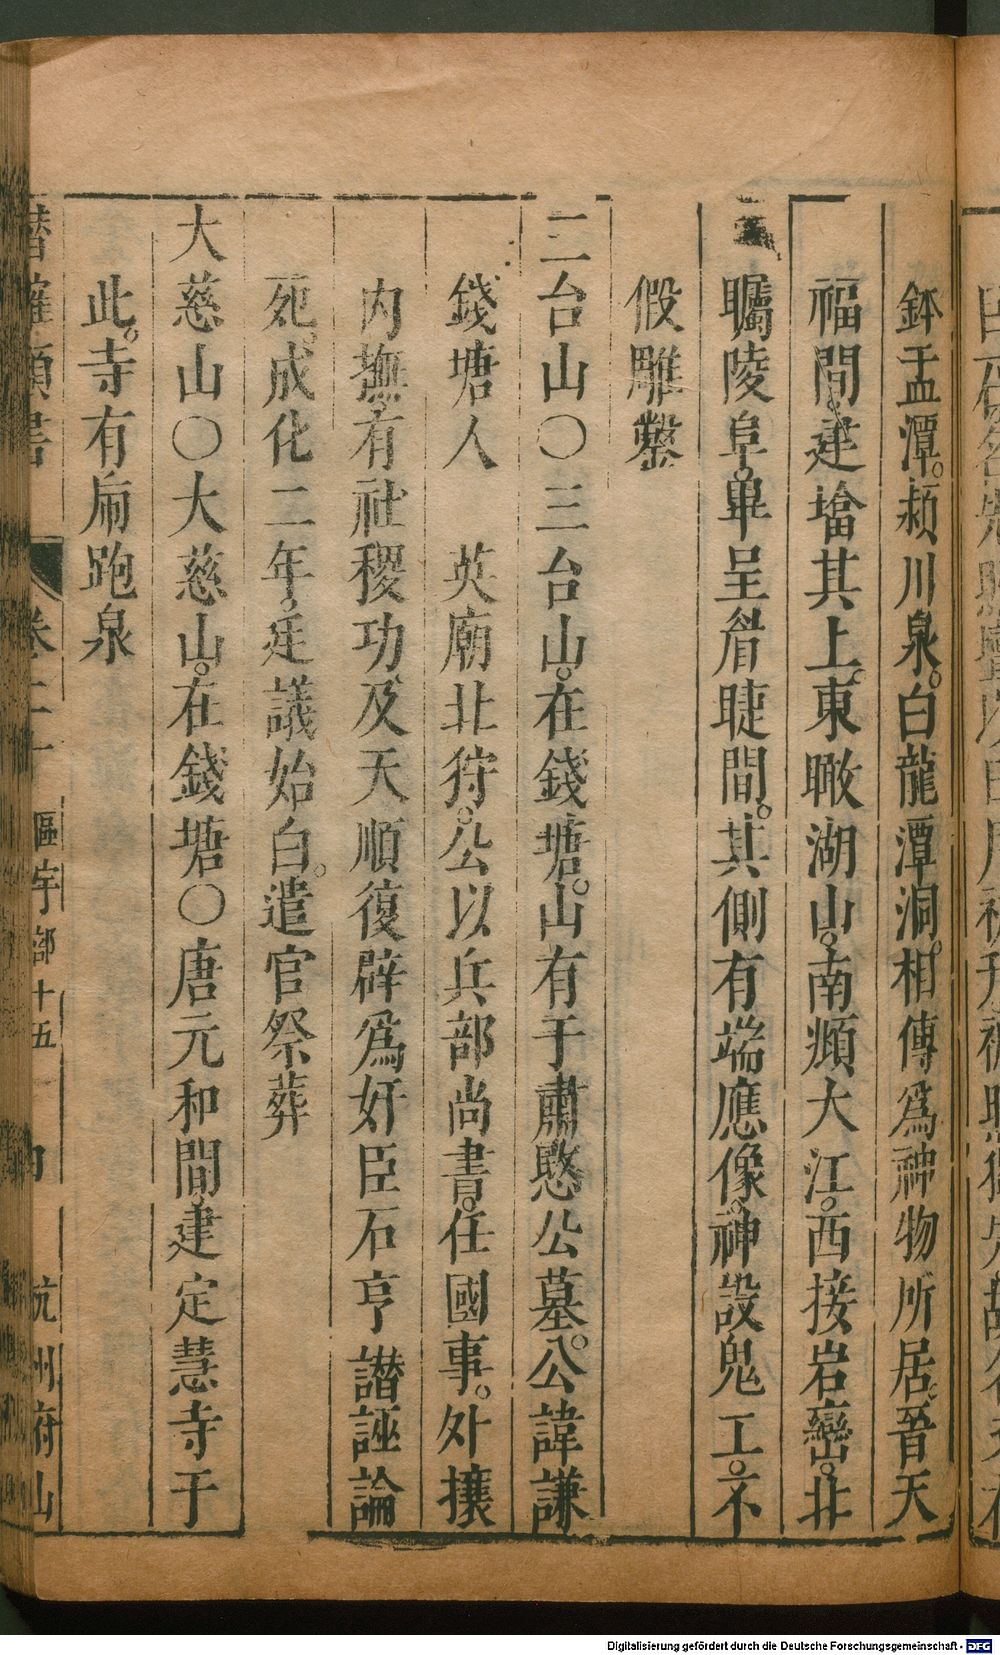 鉢盂潭。潁川泉。白龍潭洞。相傳爲神物所居。晉天
福間。建塔其上。東瞰湖山。南頫大江。西接岩巒。北
矚陵阜。畢呈眉睫間。其側有端應像。神設鬼工。不
假雕鑿
三台山〇三台山。在錢塘。山有于肅愍公墓。公諱謙
錢塘人 英廟北狩。公以兵部尚書。任國事。外攘
内撫。有社稷功。及天順復辟。爲奸臣石亨譖誣論
死。成化二年。廷議始白。遣官祭葬
大慈山〇大慈山。在錢塘〇唐元和間。建定慧寺于
此。寺有虎跑泉
潛確類書 卷二十 區宇部十五 杭州府山
Digitalisierung gefördert durch die Deutsche Forschungsgemeinschaft - DFG